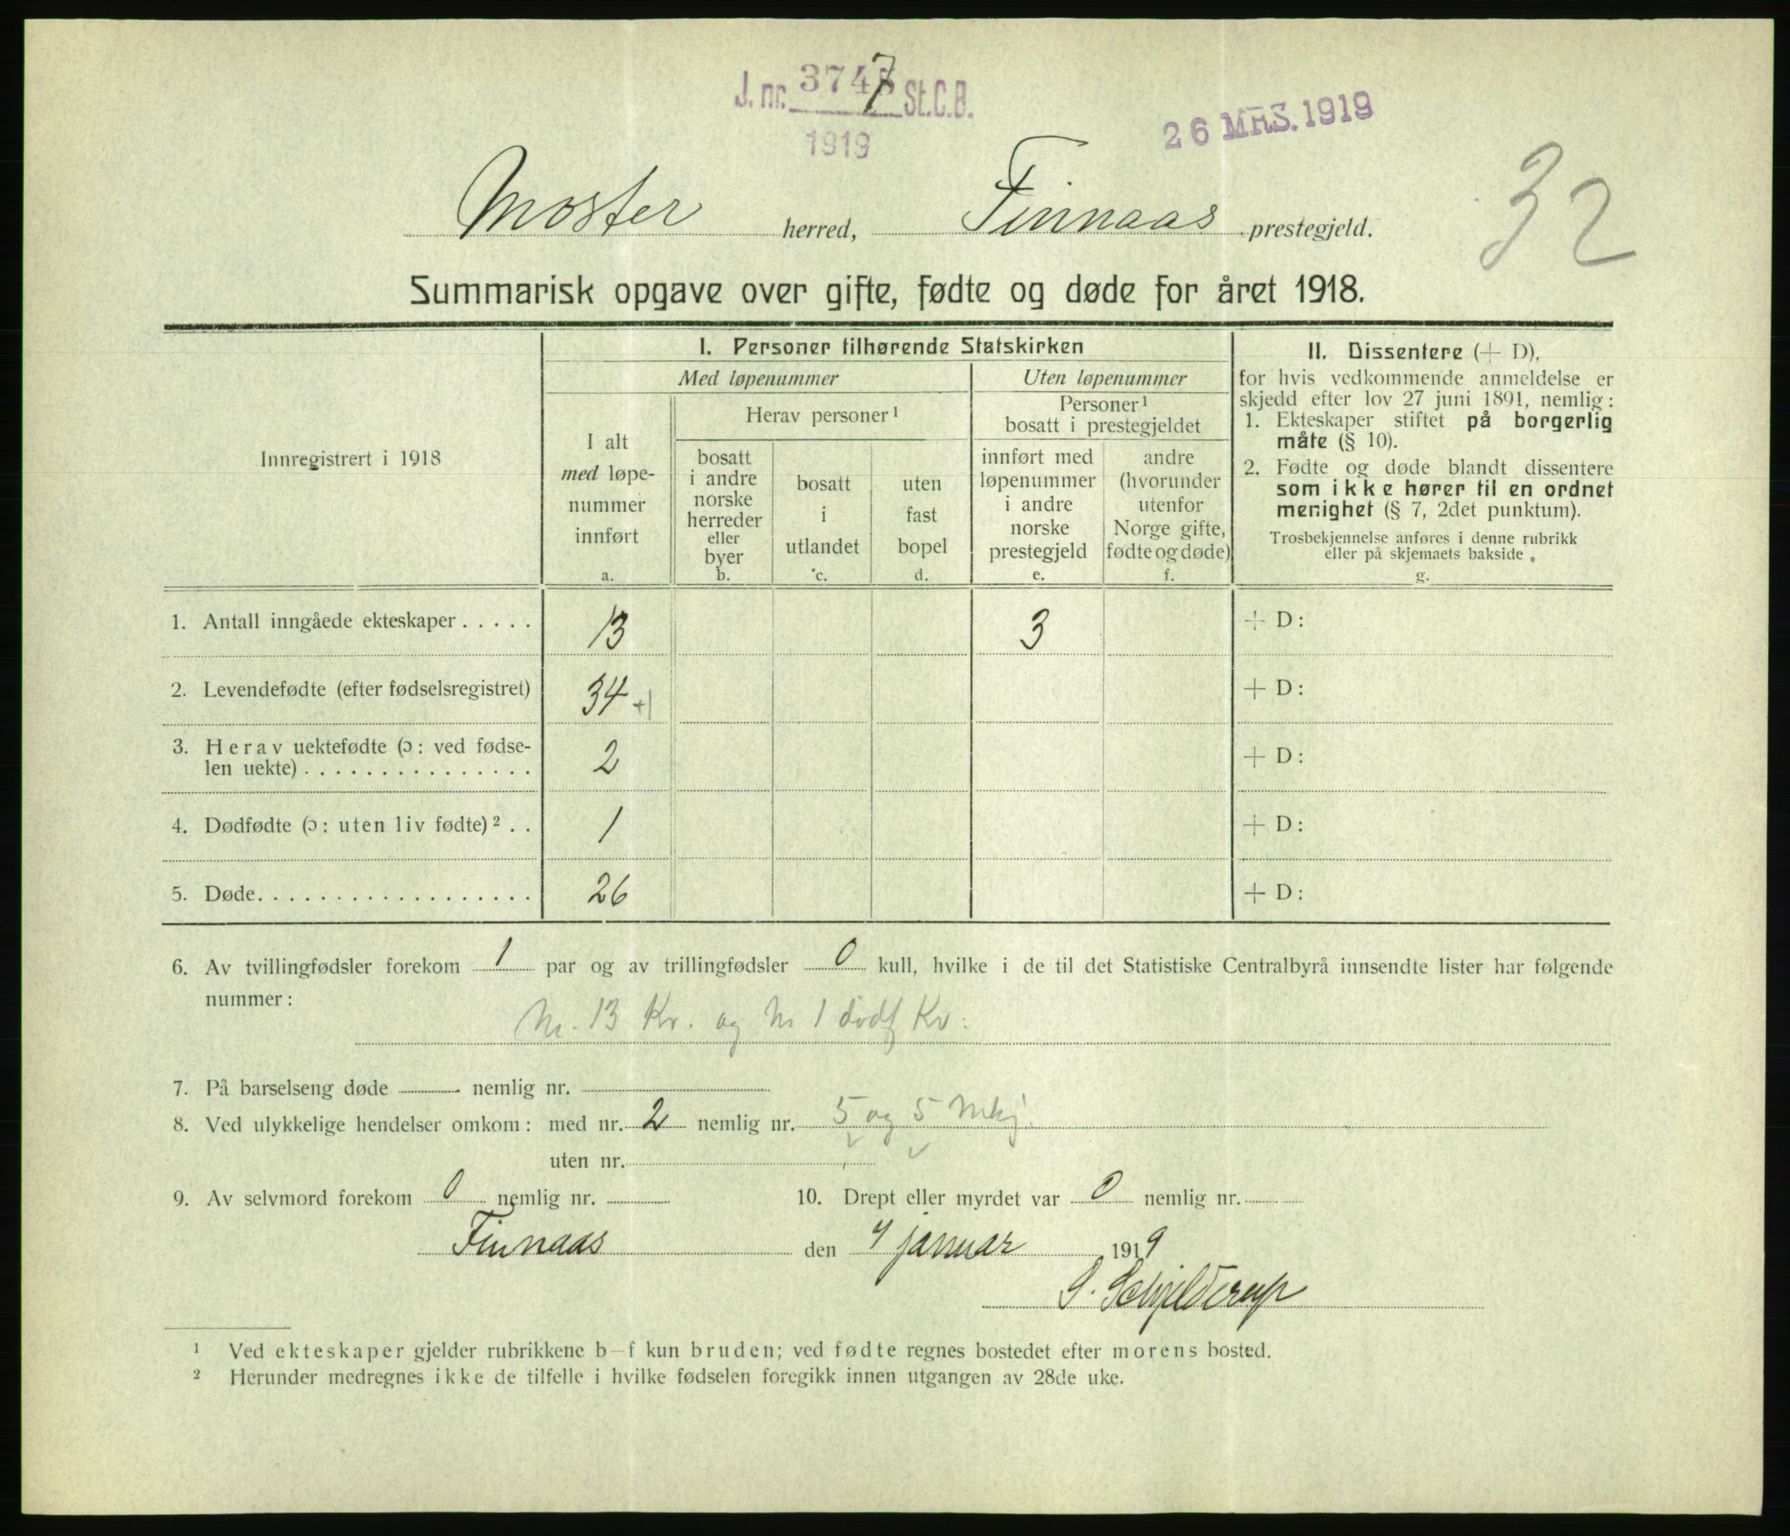 J. nr. 3747 St.C.B.
1919
26 MRS. 1919
32
Moster herred, Finnaas prestegjeld.
Summarisk opgave over gifte, fødte og døde for året 1918.
Innregistrert i 1918
I. Personer tilhørende Statskirken
Med løpenummer
Uten løpenummer
I alt
med løpe-
nummer
innført
a.
Herav personer ¹
bosatt
i andre
norske
herreder
eller
byer
b.
bosatt
i
utlandet
c.
uten
fast
bopel
d.
Personer ¹
bosatt i prestegjeldet
innført med
løpenummer
i andre
norske
prestegjeld
e.
andre
(hvorunder
utenfor
Norge gifte,
fødte og døde)
f.
II. Dissentere (+ D),
for hvis vedkommende anmeldelse er
skjedd efter lov 27 juni 1891, nemlig:
1. Ekteskaper stiftet på borgerlig
måte (§ 10).
2. Fødte og døde blandt dissentere
som ikke hører til en ordnet
menighet (§ 7, 2det punktum).
Trosbekjennelse anføres i denne rubrikk
eller på skjemaets bakside.
g.
1. Antall inngåede ekteskaper . . . . . 13 3 + D:
2. Levendefødte (efter fødselsregistret) 34 +1 + D:
3. Herav uektefødte (ɔ: ved fødse-
len uekte) . . . . . . . . . . . . . . . 2 + D:
4. Dødfødte (ɔ: uten liv fødte) ² . . 1 + D:
5. Døde. . . . . . . . . . . . . . . . . . 26 + D:
6. Av tvillingfødsler forekom 1 par og av trillingfødsler 0 kull, hvilke i de til det Statistiske Centralbyrå innsendte lister har følgende
nummer:
Nr. 13 Kv. og Nr 1 dødf Kv.
7. På barselseng døde nemlig nr.
8. Ved ulykkelige hendelser omkom: med nr. 2 nemlig nr. 5 og 5 Mkj.
uten nr.
9. Av selvmord forekom 0 nemlig nr. 10. Drept eller myrdet var 0 nemlig nr.
Finnaas den 4 januar 1919
S. Schjelderup
¹ Ved ekteskaper gjelder rubrikkene b–f kun bruden; ved fødte regnes bostedet efter morens bosted.
² Herunder medregnes ikke de tilfelle i hvilke fødselen foregikk innen utgangen av 28de uke.